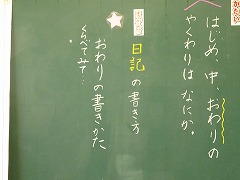 はじめ、中、おわりの
やくわりは なにか。
日記の書き方
おわりの書きかた
くらべてみて…。